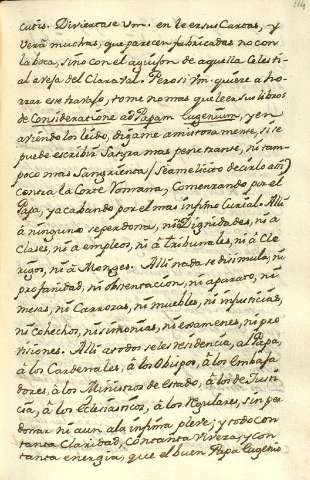 114
cutis. Diviertase Vm. en leer sus Cartas, y
verá muchas, que parecen fabricadas no con
la boca, sino con el aguijon de aquella Celesti-
al abeja del Claraval. Pero si Vm. quiere aho-
rrar ese trabajo, tome no mas que leer sus libros
de Consideratione ad Papam Eugenium, y en
aviendo los leido, digame amistosamente, si se
puede escribir Satyra mas penetrante, ni tam-
poco mas Sangrienta (seame licito decirlo assi)
contra la Corte Romana, Comenzando por el
Papa, y acabando por el mas infimo Curial. Alli
á ninguno se perdona, ni á Dignidades, ni á
Clases, ni á empleos, ni á tribunales, ni á Cle-
rigos, ni á Monges. Alli nada se disimula; ni
profanidad, ni obstentacion, ni aparato, ni
mesas, ni Carrozas, ni muebles, ni injusticias,
ni cohechos, ni simonias, ni esamenes, ni pro-
visiones. Alli á todos se les residencia, al Papa,
á los Cardenales, á los Obispos, á los Embaja-
dores, á los Ministros de Estado, á los de Justi-
cia, á los Eclesiasticos, á los Regulares, sin per-
donar ni aun ala infima plebe; y todo con
tanta Claridad, Con tanta Viveza, y con
tanta energia, que el buen Papa Eugenio